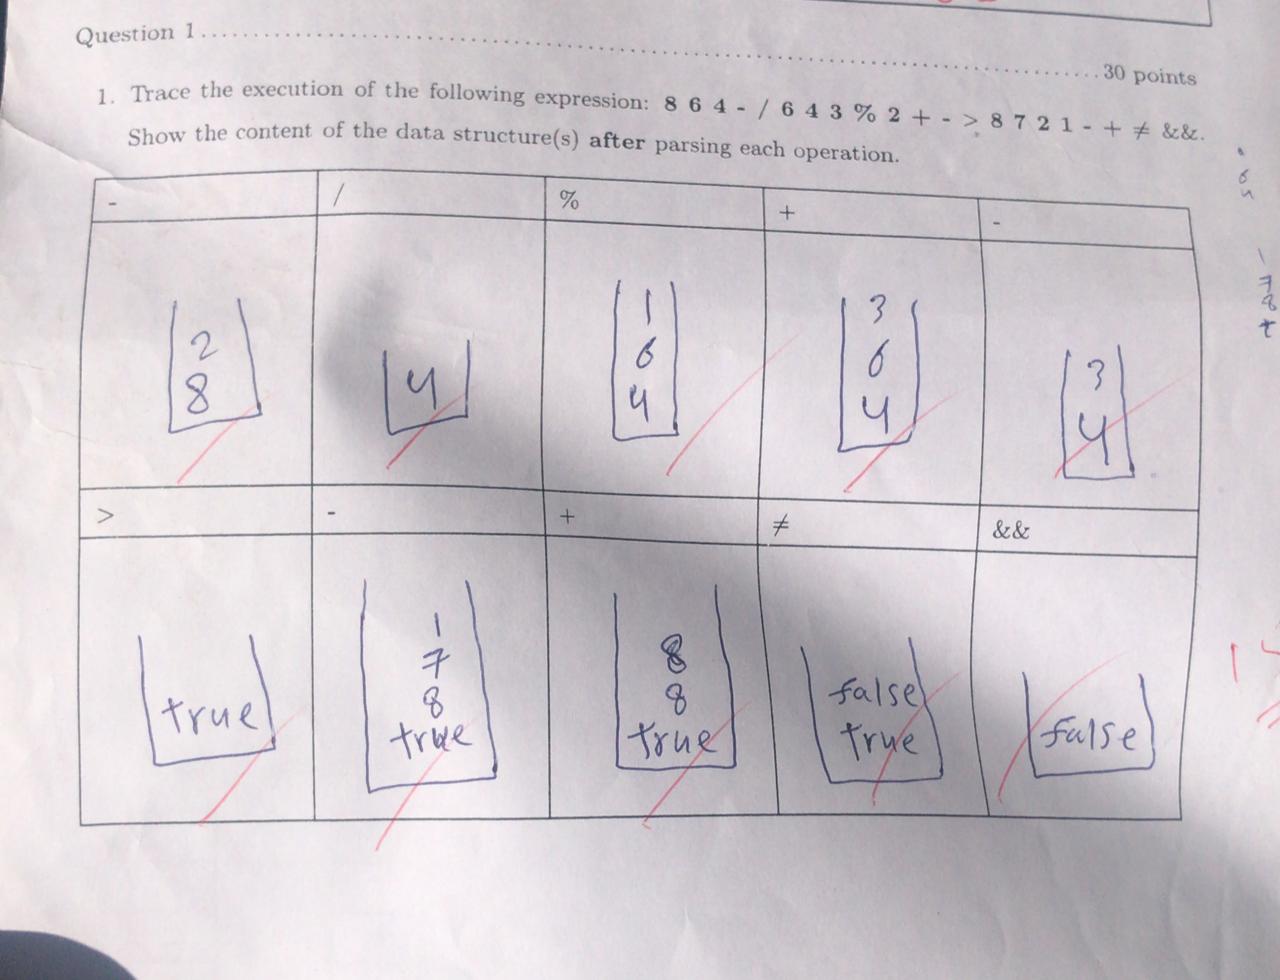 Question 1 ........................................................................ 30 points
1. Trace the execution of the following expression: 8 6 4 - / 6 4 3 % 2 + - > 8 7 2 1 - + ≠ &&.
Show the content of the data structure(s) after parsing each operation.
- / % + -
2
8
4
1
6
4
3
6
4
3
4
> - + ≠ &&
true
1
7
8
true
8
8
true
false
true
false